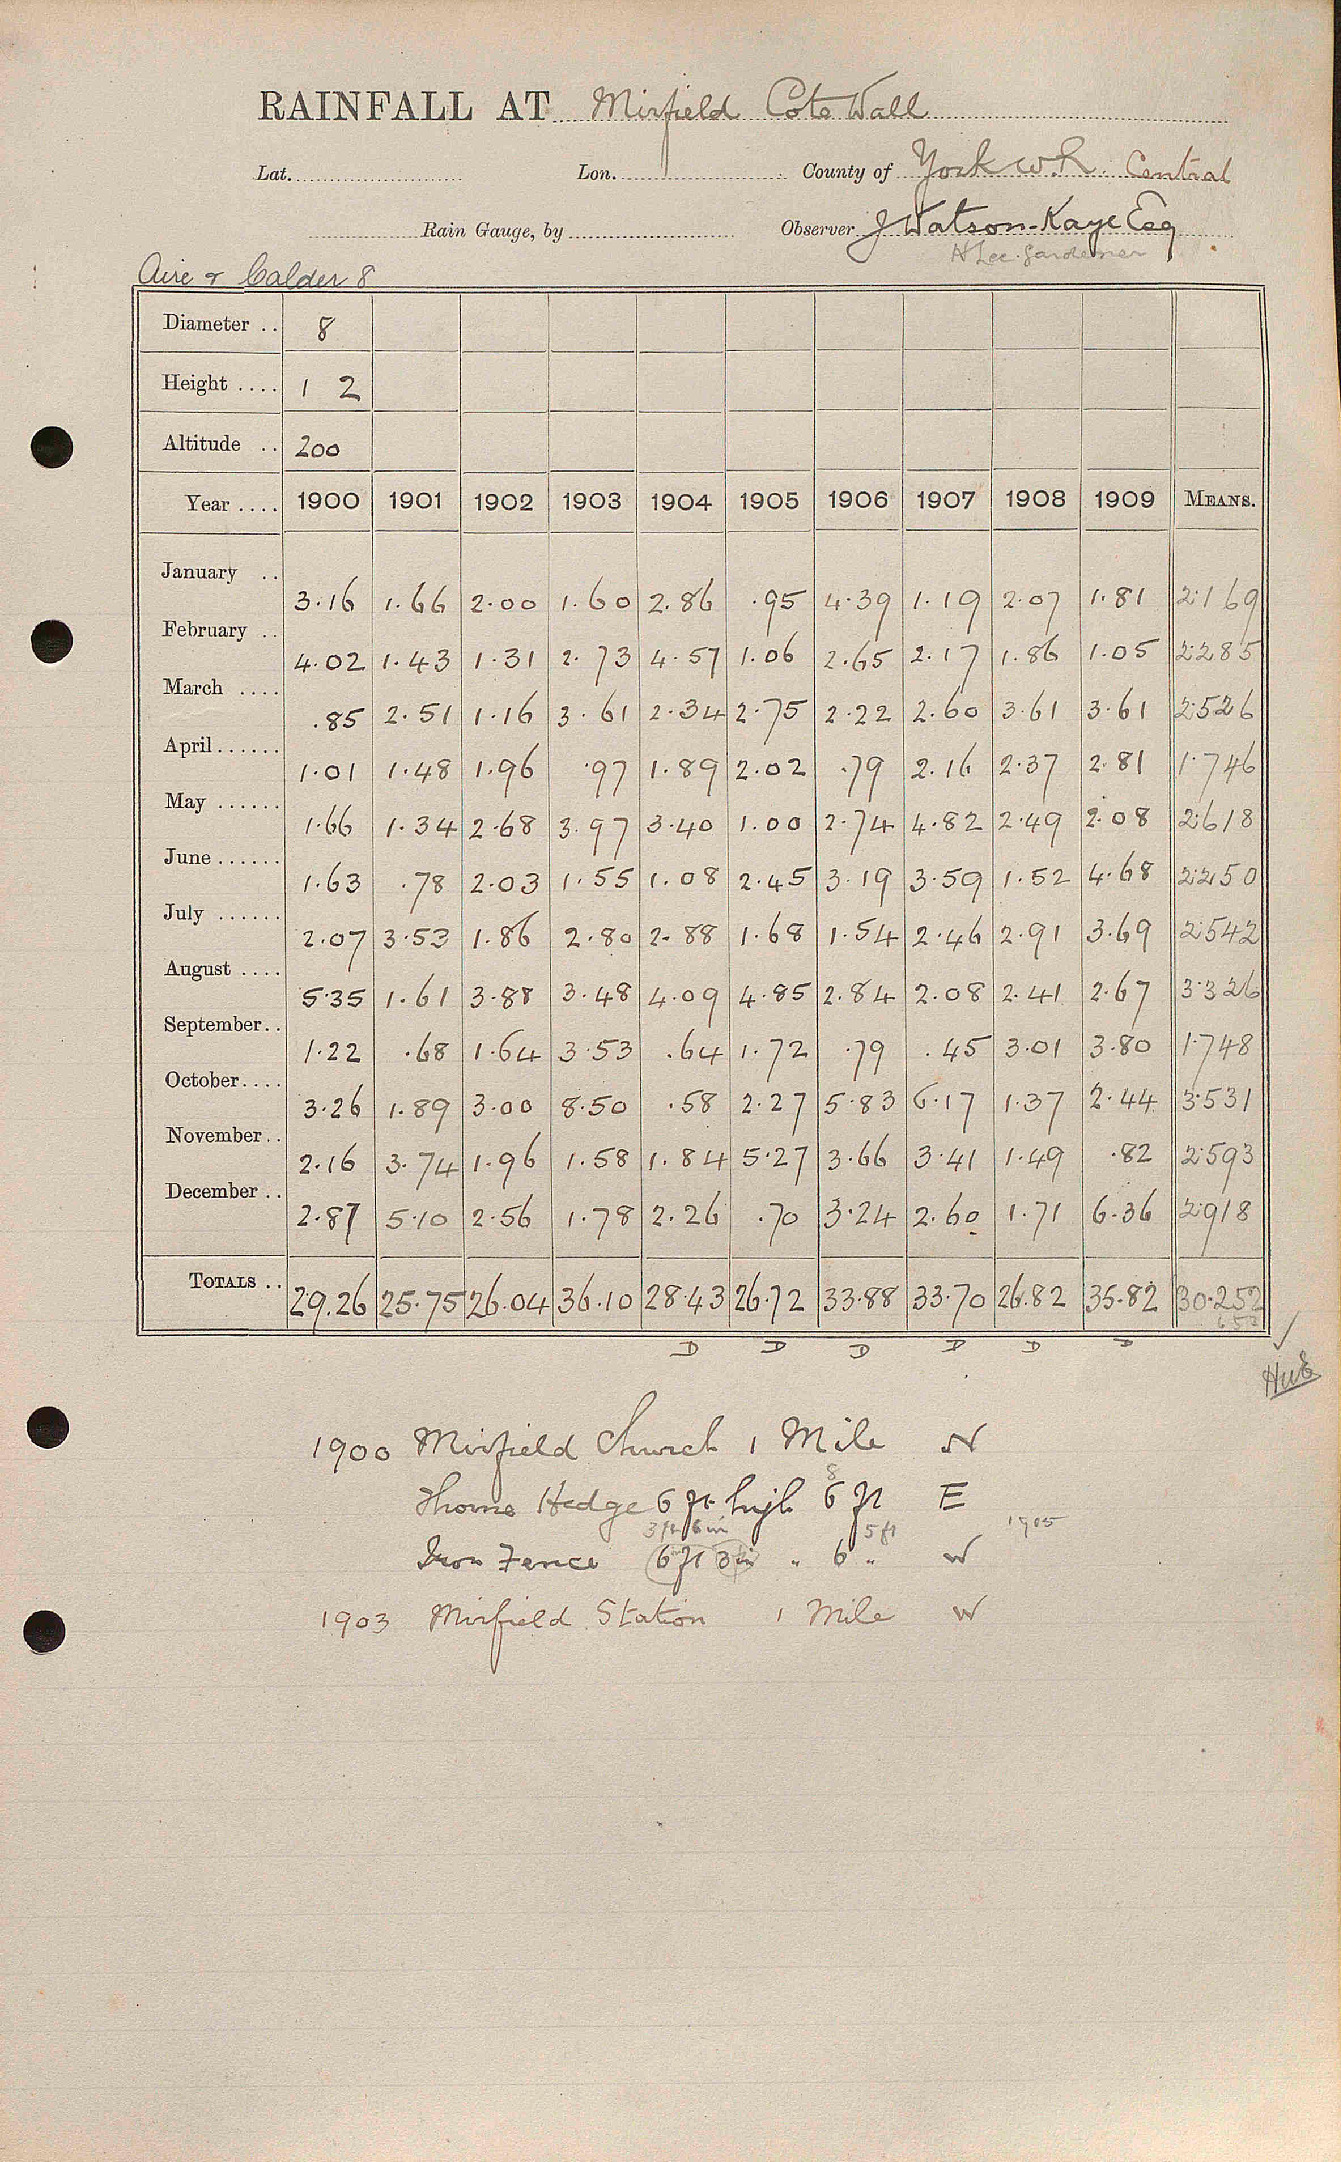 RAINFALL AT Mirfield Cote Wall
Lat. Lon. County of York W.R. Central
Rain Gauge, by Observer J Watson-Kaye Esq
H Lee gardener
Aire & Calder 8
Diameter .. 8
Height .... 1 2
Altitude .. 200
Year .... 1900 1901 1902 1903 1904 1905 1906 1907 1908 1909 MEANS.
January .. 3.16 1.66 2.00 1.60 2.86 .95 4.39 1.19 2.07 1.81 2.169
February .. 4.02 1.43 1.31 2.73 4.57 1.06 2.65 2.17 1.86 1.05 2.285
March .... .85 2.51 1.16 3.61 2.34 2.75 2.22 2.60 3.61 3.61 2.526
April ...... 1.01 1.48 1.96 .97 1.89 2.02 .79 2.16 2.37 2.81 1.746
May ...... 1.66 1.34 2.68 3.97 3.40 1.00 2.74 4.82 2.49 2.08 2.618
June ...... 1.63 .78 2.03 1.55 1.08 2.45 3.19 3.59 1.52 4.68 2.250
July ...... 2.07 3.53 1.86 2.80 2.88 1.68 1.54 2.46 2.91 3.69 2.542
August .... 5.35 1.61 3.88 3.48 4.09 4.85 2.84 2.08 2.41 2.67 3.326
September .. 1.22 .68 1.64 3.53 .64 1.72 .79 .45 3.01 3.80 1.748
October .... 3.26 1.89 3.00 8.50 .58 2.27 5.83 6.17 1.37 2.44 3.531
November .. 2.16 3.74 1.96 1.58 1.84 5.27 3.66 3.41 1.49 .82 2.593
December .. 2.87 5.10 2.56 1.78 2.26 .70 3.24 2.60 1.71 6.36 2.918
TOTALS .. 29.26 25.75 26.04 36.10 28.43 26.72 33.88 33.70 26.82 35.82 30.252
D D D D D D
1900 Mirfield Church 1 Mile N
8
Thorne Hedge 6 ft high 6 ft E
3 ft 6 in 5 ft 1905
Iron Fence 6 ft 3 in " 6 " W
1903 Mirfield Station 1 Mile W